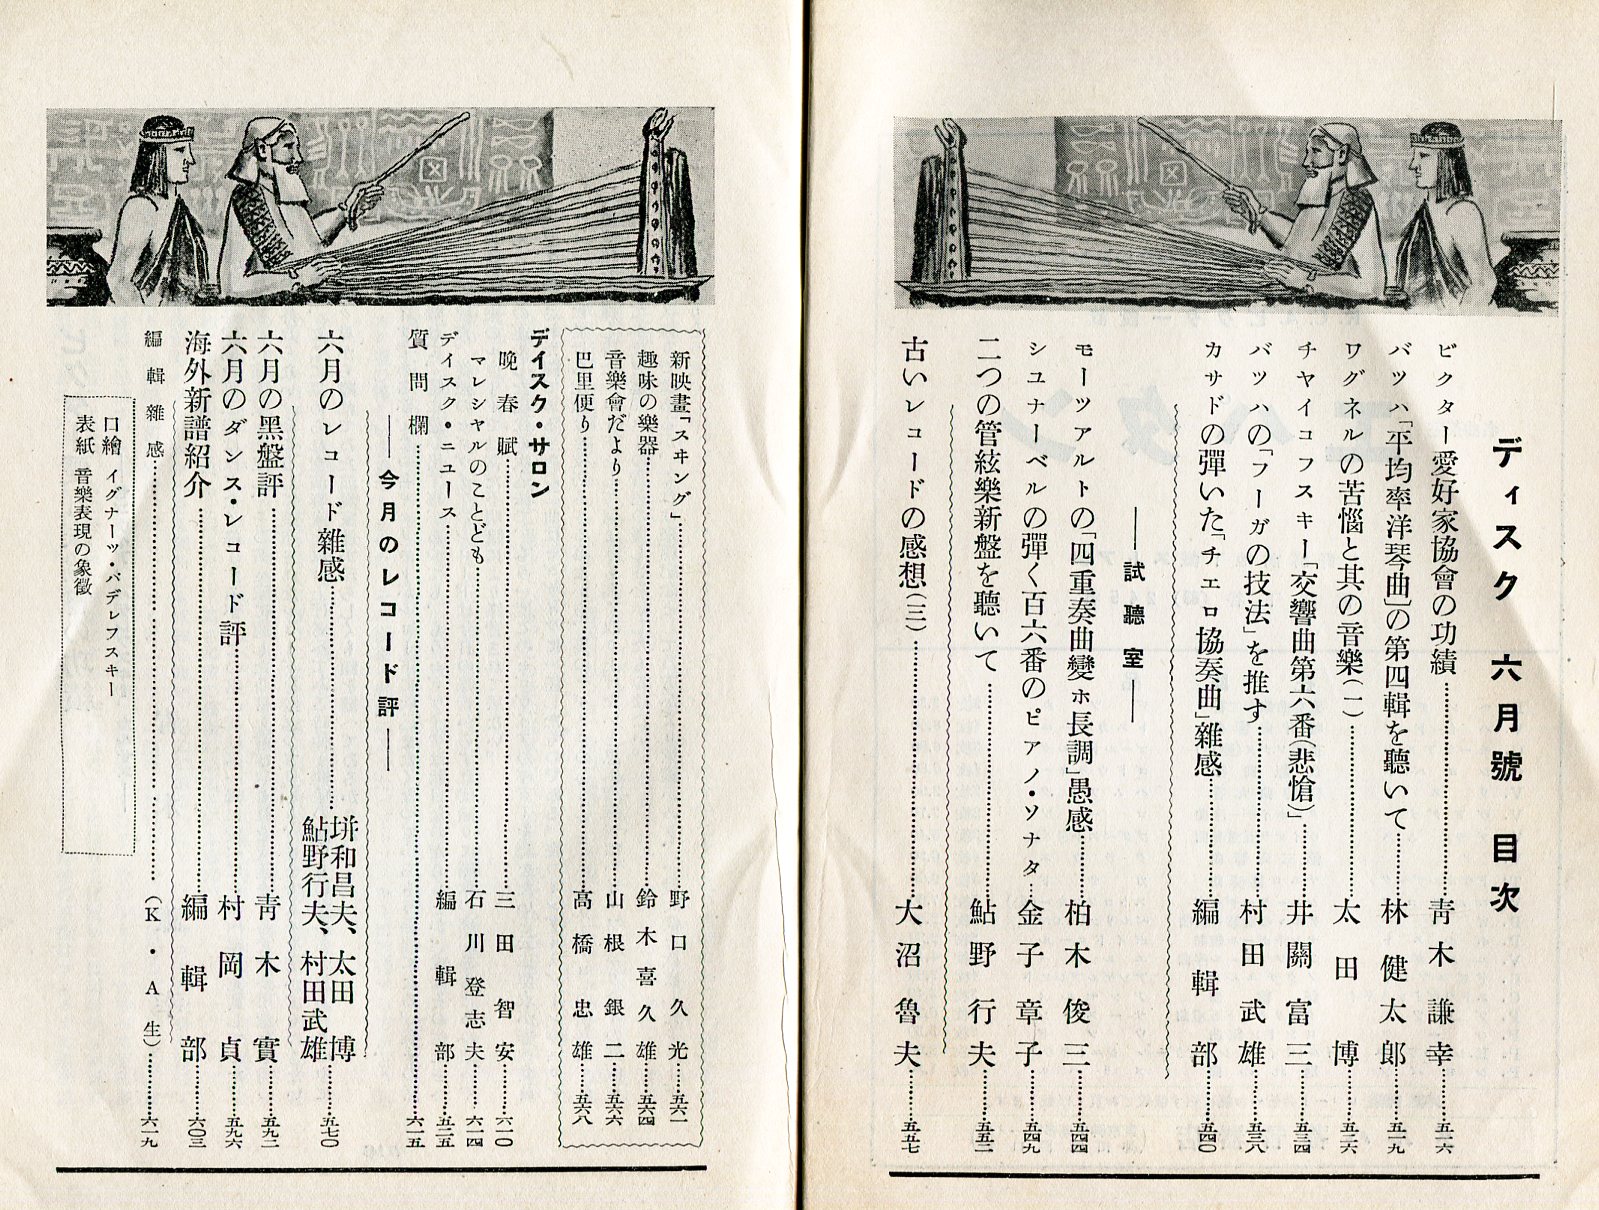 ディスク 六月號 目次
ビクター愛好家協會の功績……青木謙幸……五一六
バツハ「平均率洋琴曲」の第四輯を聽いて……林健太郎……五一九
ワグネルの苦惱と其の音樂(一)……太田博……五二六
チヤイコフスキー「交響曲第六番(悲愴)」……井關富三……五三四
バツハの「フーガの技法」を推す……村田武雄……五三八
カサドの彈いた「チエロ協奏曲」雜感……編輯部……五四〇
――試聽室――
モーツアルトの「四重奏曲變ホ長調」愚感……柏木俊三……五四四
シユナーベルの彈く百六番のピアノ・ソナタ……金子章子……五四九
二つの管絃樂新盤を聽いて……鮎野行夫……五五二
古いレコードの感想(三)……大沼魯夫……五五七
新映畫「スヰング」……野口久光……五六二
趣味の樂器……鈴木喜久雄……五六四
音樂會だより……山根銀二……五六六
巴里便り……高橋忠雄……五六八
デイスク・サロン
晩春賦……三田智安……六一〇
マレシヤルのことども……石川登志夫……六一四
デイスク・ニユース……編輯部……五二五
質問欄……六一五
――今月のレコード評――
六月のレコード雜感……垪和昌夫、太田博 鮎野行夫、村田武雄……五七〇
六月の黑盤評……靑木實……五九二
六月のダンス・レコード評……村岡貞……五九六
海外新譜紹介……編輯部……六〇三
編輯雜感……(K・A生)……六一九
口繪 イグナーツ・パデレフスキー
表紙 音樂表現の象徵